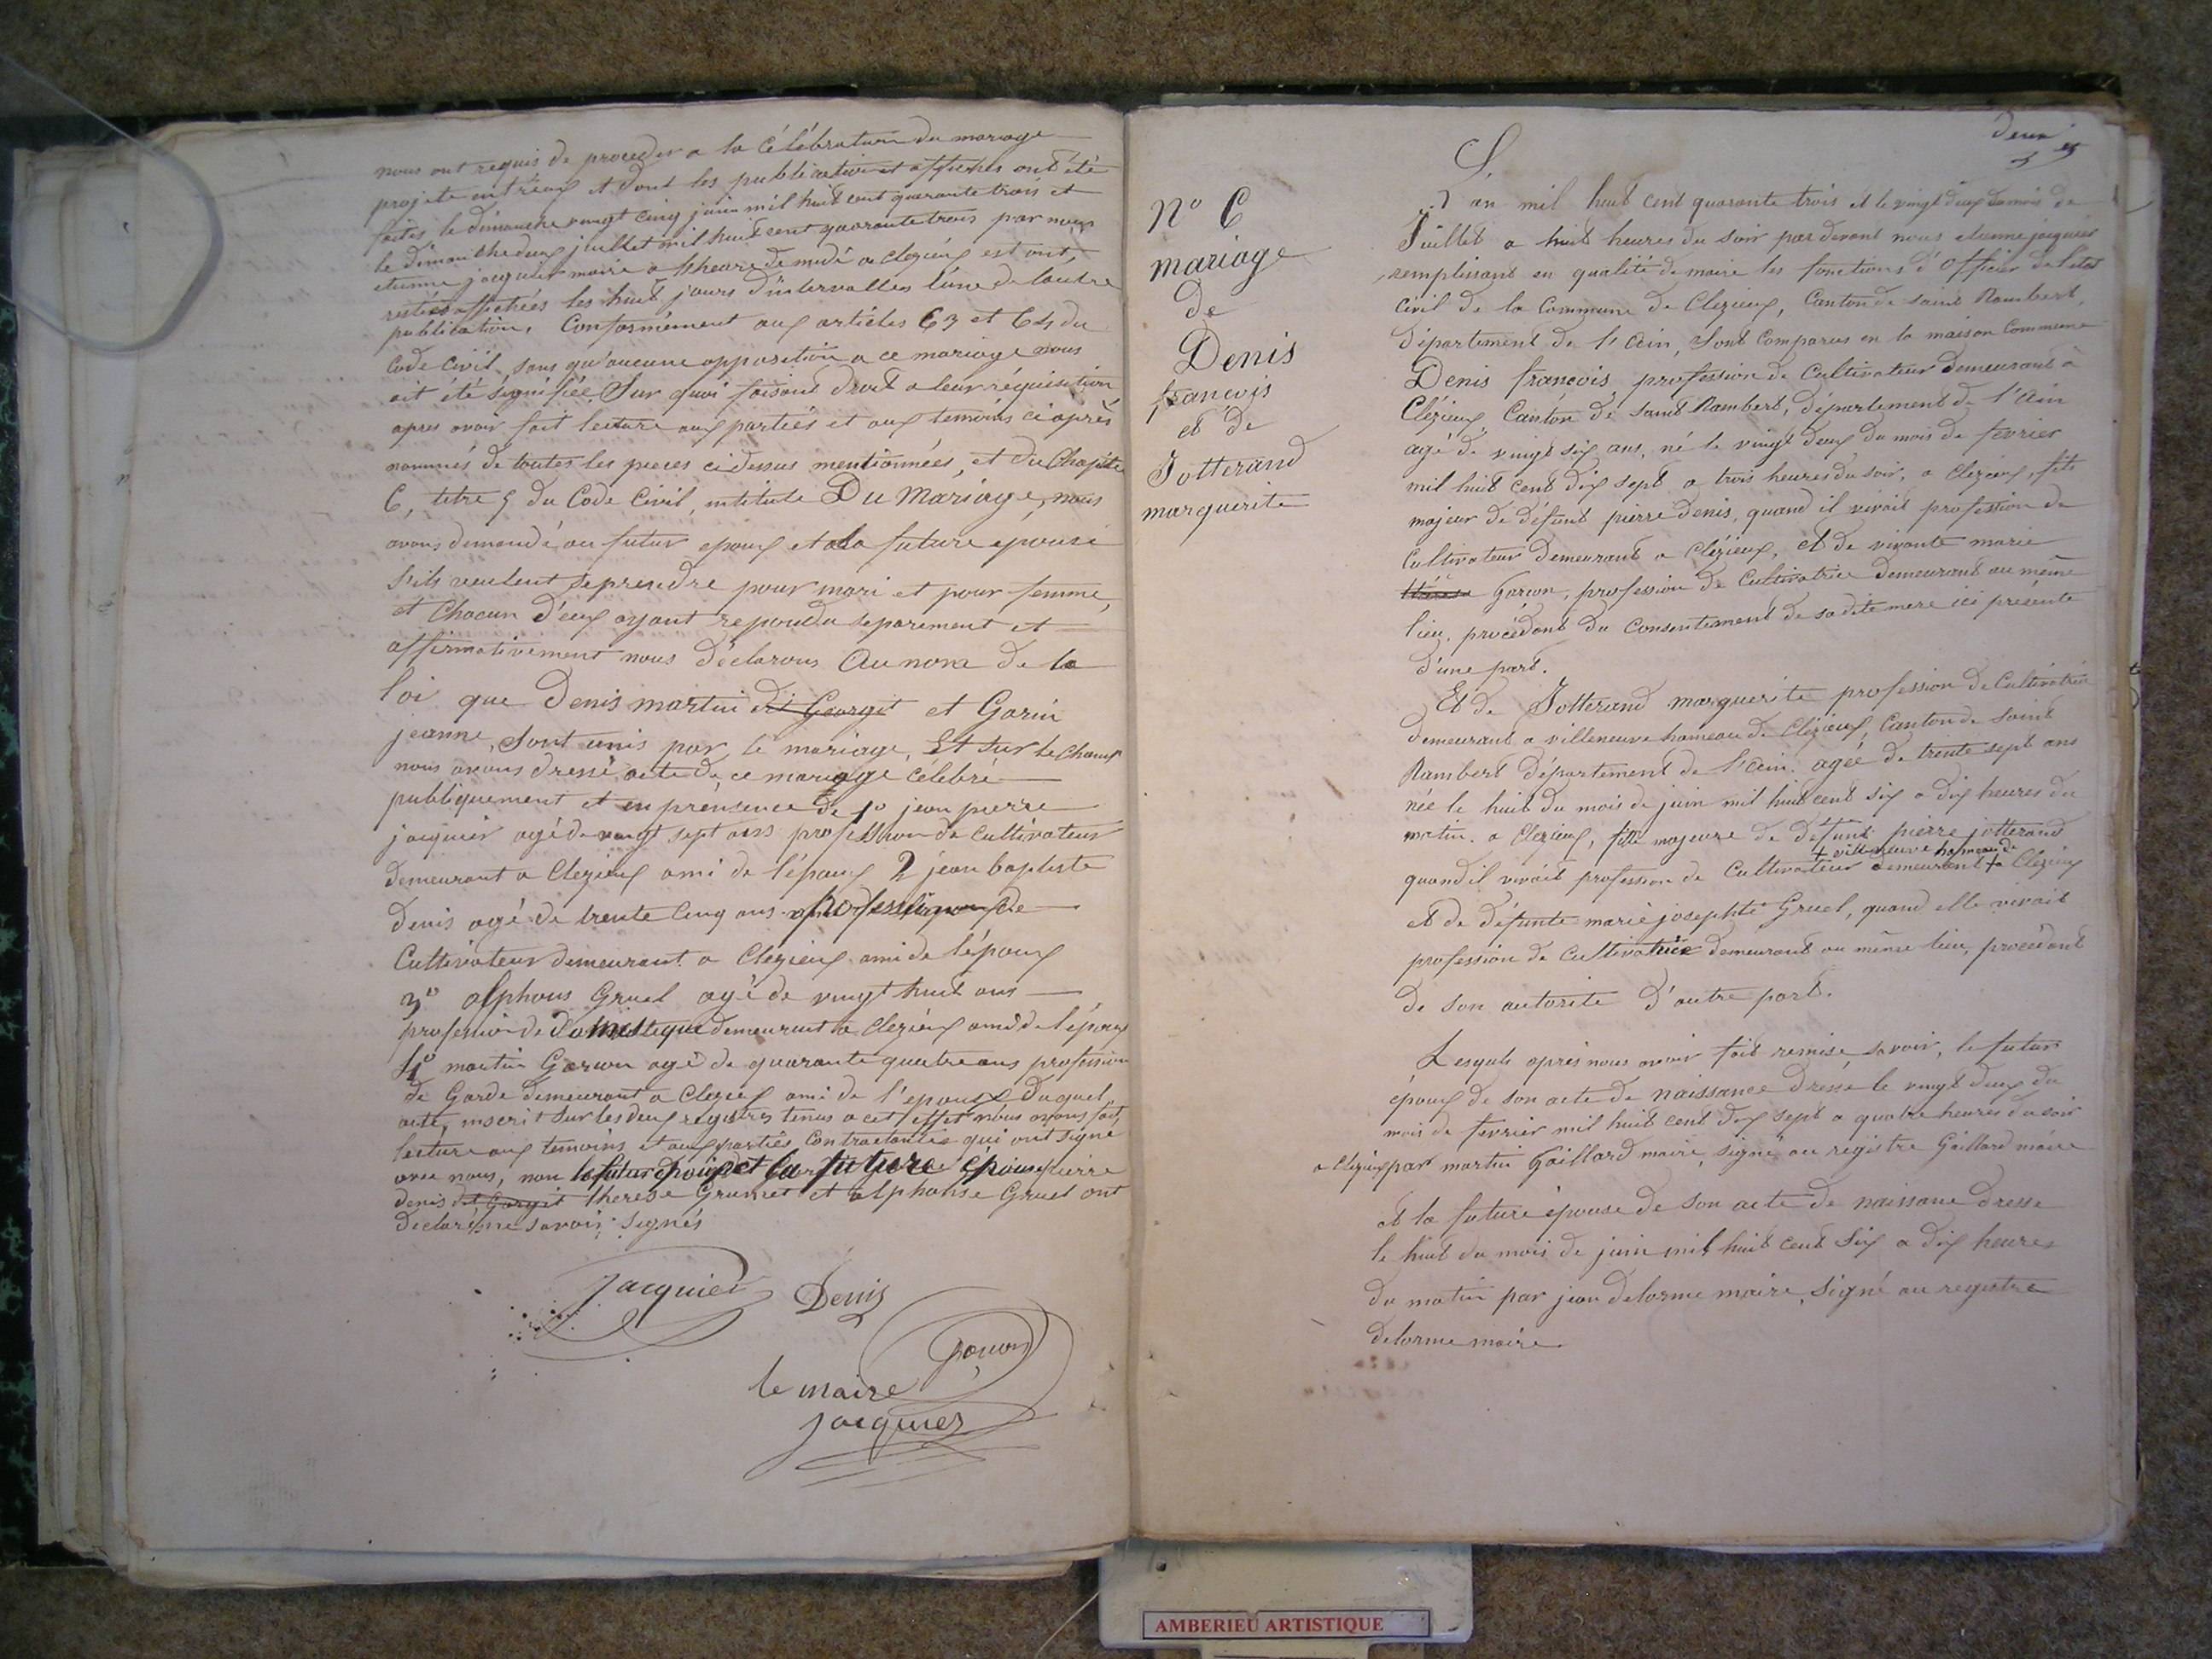 nous ont requis de proceder a la célébration du mariage
projeté entr'eux et dont les publications et affiches ont été
faites le dimanche vingt cinq juin mil huit cent quarante trois et
le dimanche deux juillet mil huit cent quarante trois par nous
etienne jacquier maire a l'heure de midi a clezieux est ont,
restées affichées les huit jours d'intervalles l'une de l'autre
publication, Conformément aux articles 63 et 64 du
Code Civil, sans qu'aucune opposition a ce mariage nous
ait été signifiée. Sur quoi faisant droit a leur réquisition
apres avoir fait lecture aux partiés et aux temoins ci après
nommés de toutes les pieces ci dessus mentionnées, et du Chapitre
6, titre 5 du Code Civil, intitule Du Mariage, nous
avons demandé au futur epoux et a la future épouse
s'ils veulent se prendre pour mari et pour femme,
et Chacun d'eux ayant repondu separement et
affirmativement nous déclarons Au nom de la
loi que Denis martin dit Georget et Garin
jeanne, sont unis par le mariage, Et sur le Champ
nous avons dressé acte de ce mariage célébré
publiquement et en presence de 1º jean pierre
jacquier agé de vingt sept ans profession de Cultivateur
demeurant a Clezieux ami de l'époux 2 jean baptiste
Denis agé de trente Cinq ans profession de
Cultivateur demeurant a Clezieux ami de l'époux
3º alphons Gruel agé de vingt huit ans
profession de domestique demeurant a Clezieux ami de l'époux
4º martin Garion agé de quarante quatre ans profession
de Garde demeurant a Clezieux ami de l'epouse Duquel
acte, inscrit sur les deux registres tenus a cet effet nous avons fait
lecture aux temoins et aux partiés Contractantes qui ont signé
avec nous, non le futur époux et la future épouse pierre
denis dit Gorget therese Grumet et alphonse Gruel ont
declaré ne savoir signés
Jacquier Denis
le maire
jacquier
deux
Nº 6
mariage
de
Denis
françois
et de
Jotterand
marguerite
L'an mil huit cent quarante trois et le vingt deux du mois de
Juillet a huit heures du soir par devant nous etienne jacquier
remplissant en qualité de maire les fonctions d'Officier de l'etat
Civil de la Commune de Clezieux, Canton de saint Rambert,
département de l'ain, sont Comparus en la maison Commune
Denis françois, profession de Cultivateur demeurant à
Clézieux Canton de saint Rambert, département de l'ain
agé de vingt six ans, né le vingt deux du mois de fevrier
mil huit cent dix sept a trois heures du soir, a Clezieux, fils
majeur de défunt pierre denis, quand il vivait profession de
Cultivateur demeurant a Clézieux, et de vivante marie
thérese Garion, profession de Cultivatrice demeurant au même
lieu, procédant du Consentement de sa dite mere ici présente
d'une part.
Et de Jotterand marguerite profession de Cultivatrice
demeurant a villeneuve hameau de Clézieux, Canton de saint
Rambert département de l'ain. agée de trente sept ans
née le huit du mois de juin mil huit cent six a dix heures du
matin. a Clezieux, fille majeure de défunt pierre jotterand
+ villeneuve hameau de
quand il vivait profession de Cultivateur demeurant + a Clézieux
et de défunte marie josephte Gruel, quand elle vivait
profession de Cultivatrice demeurant au même lieu, procédant
de son autorite d'autre part.
Lesquels après nous avoir fait remise savoir, le futur
époux de son acte de naissance dressé le vingt deux du
mois de fevrier mil huit cent dix sept a quatre heures du soir
a Clezieux par martin Gaillard maire, signé au registre Gaillard maire
et la future épouse de son acte de naissance dresse
le huit du mois de juin mil huit cent six a dix heures
du matin par jean delorme maire, signé au registre
delorme maire
AMBERIEU ARTISTIQUE